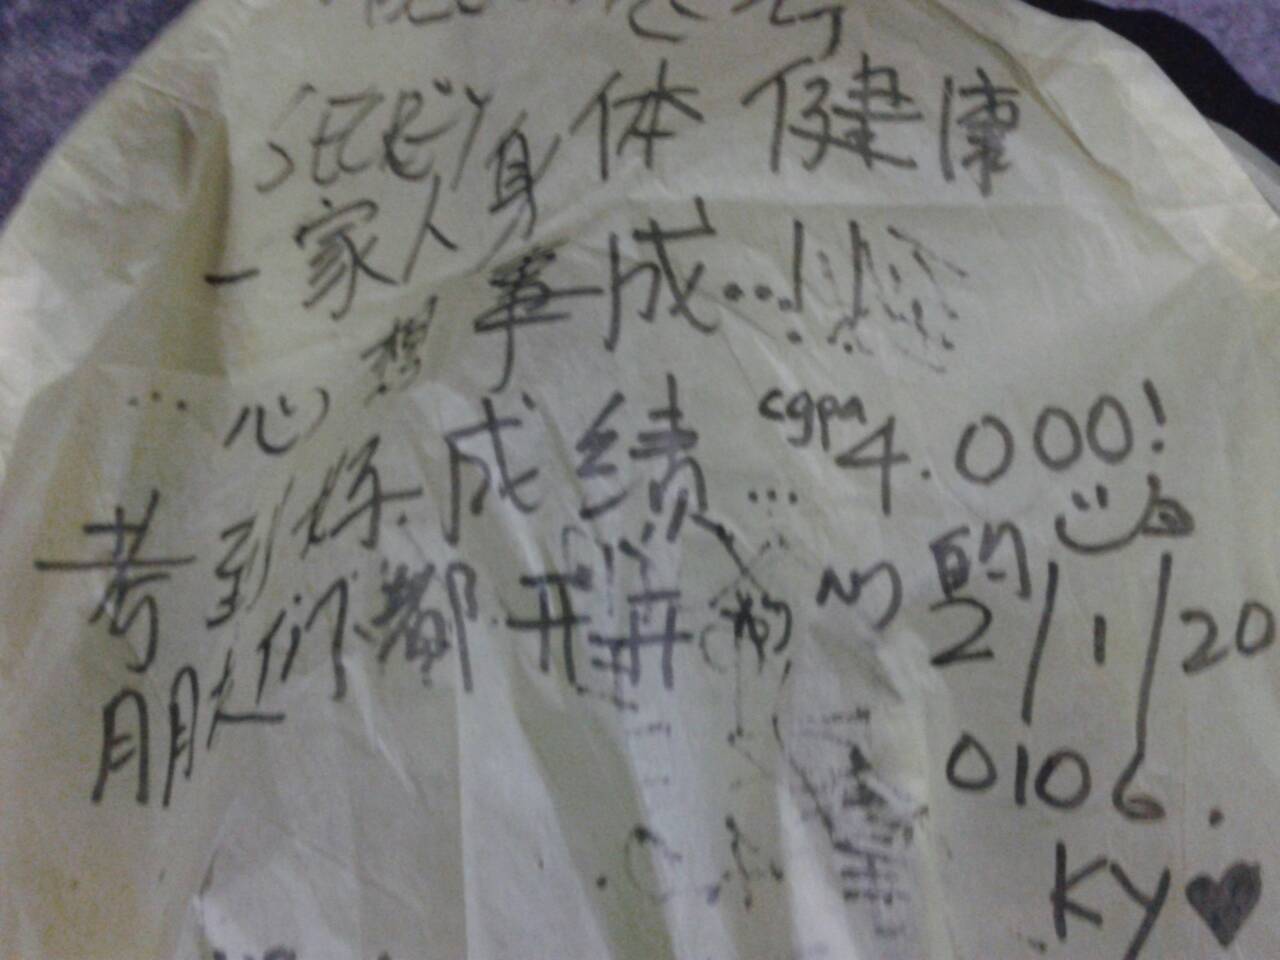 一家人身体健康
...心想事成...!!
考到好成绩... cgpa 4.000!
朋友们都开开心心的
2/1/20
0106.
KY♥